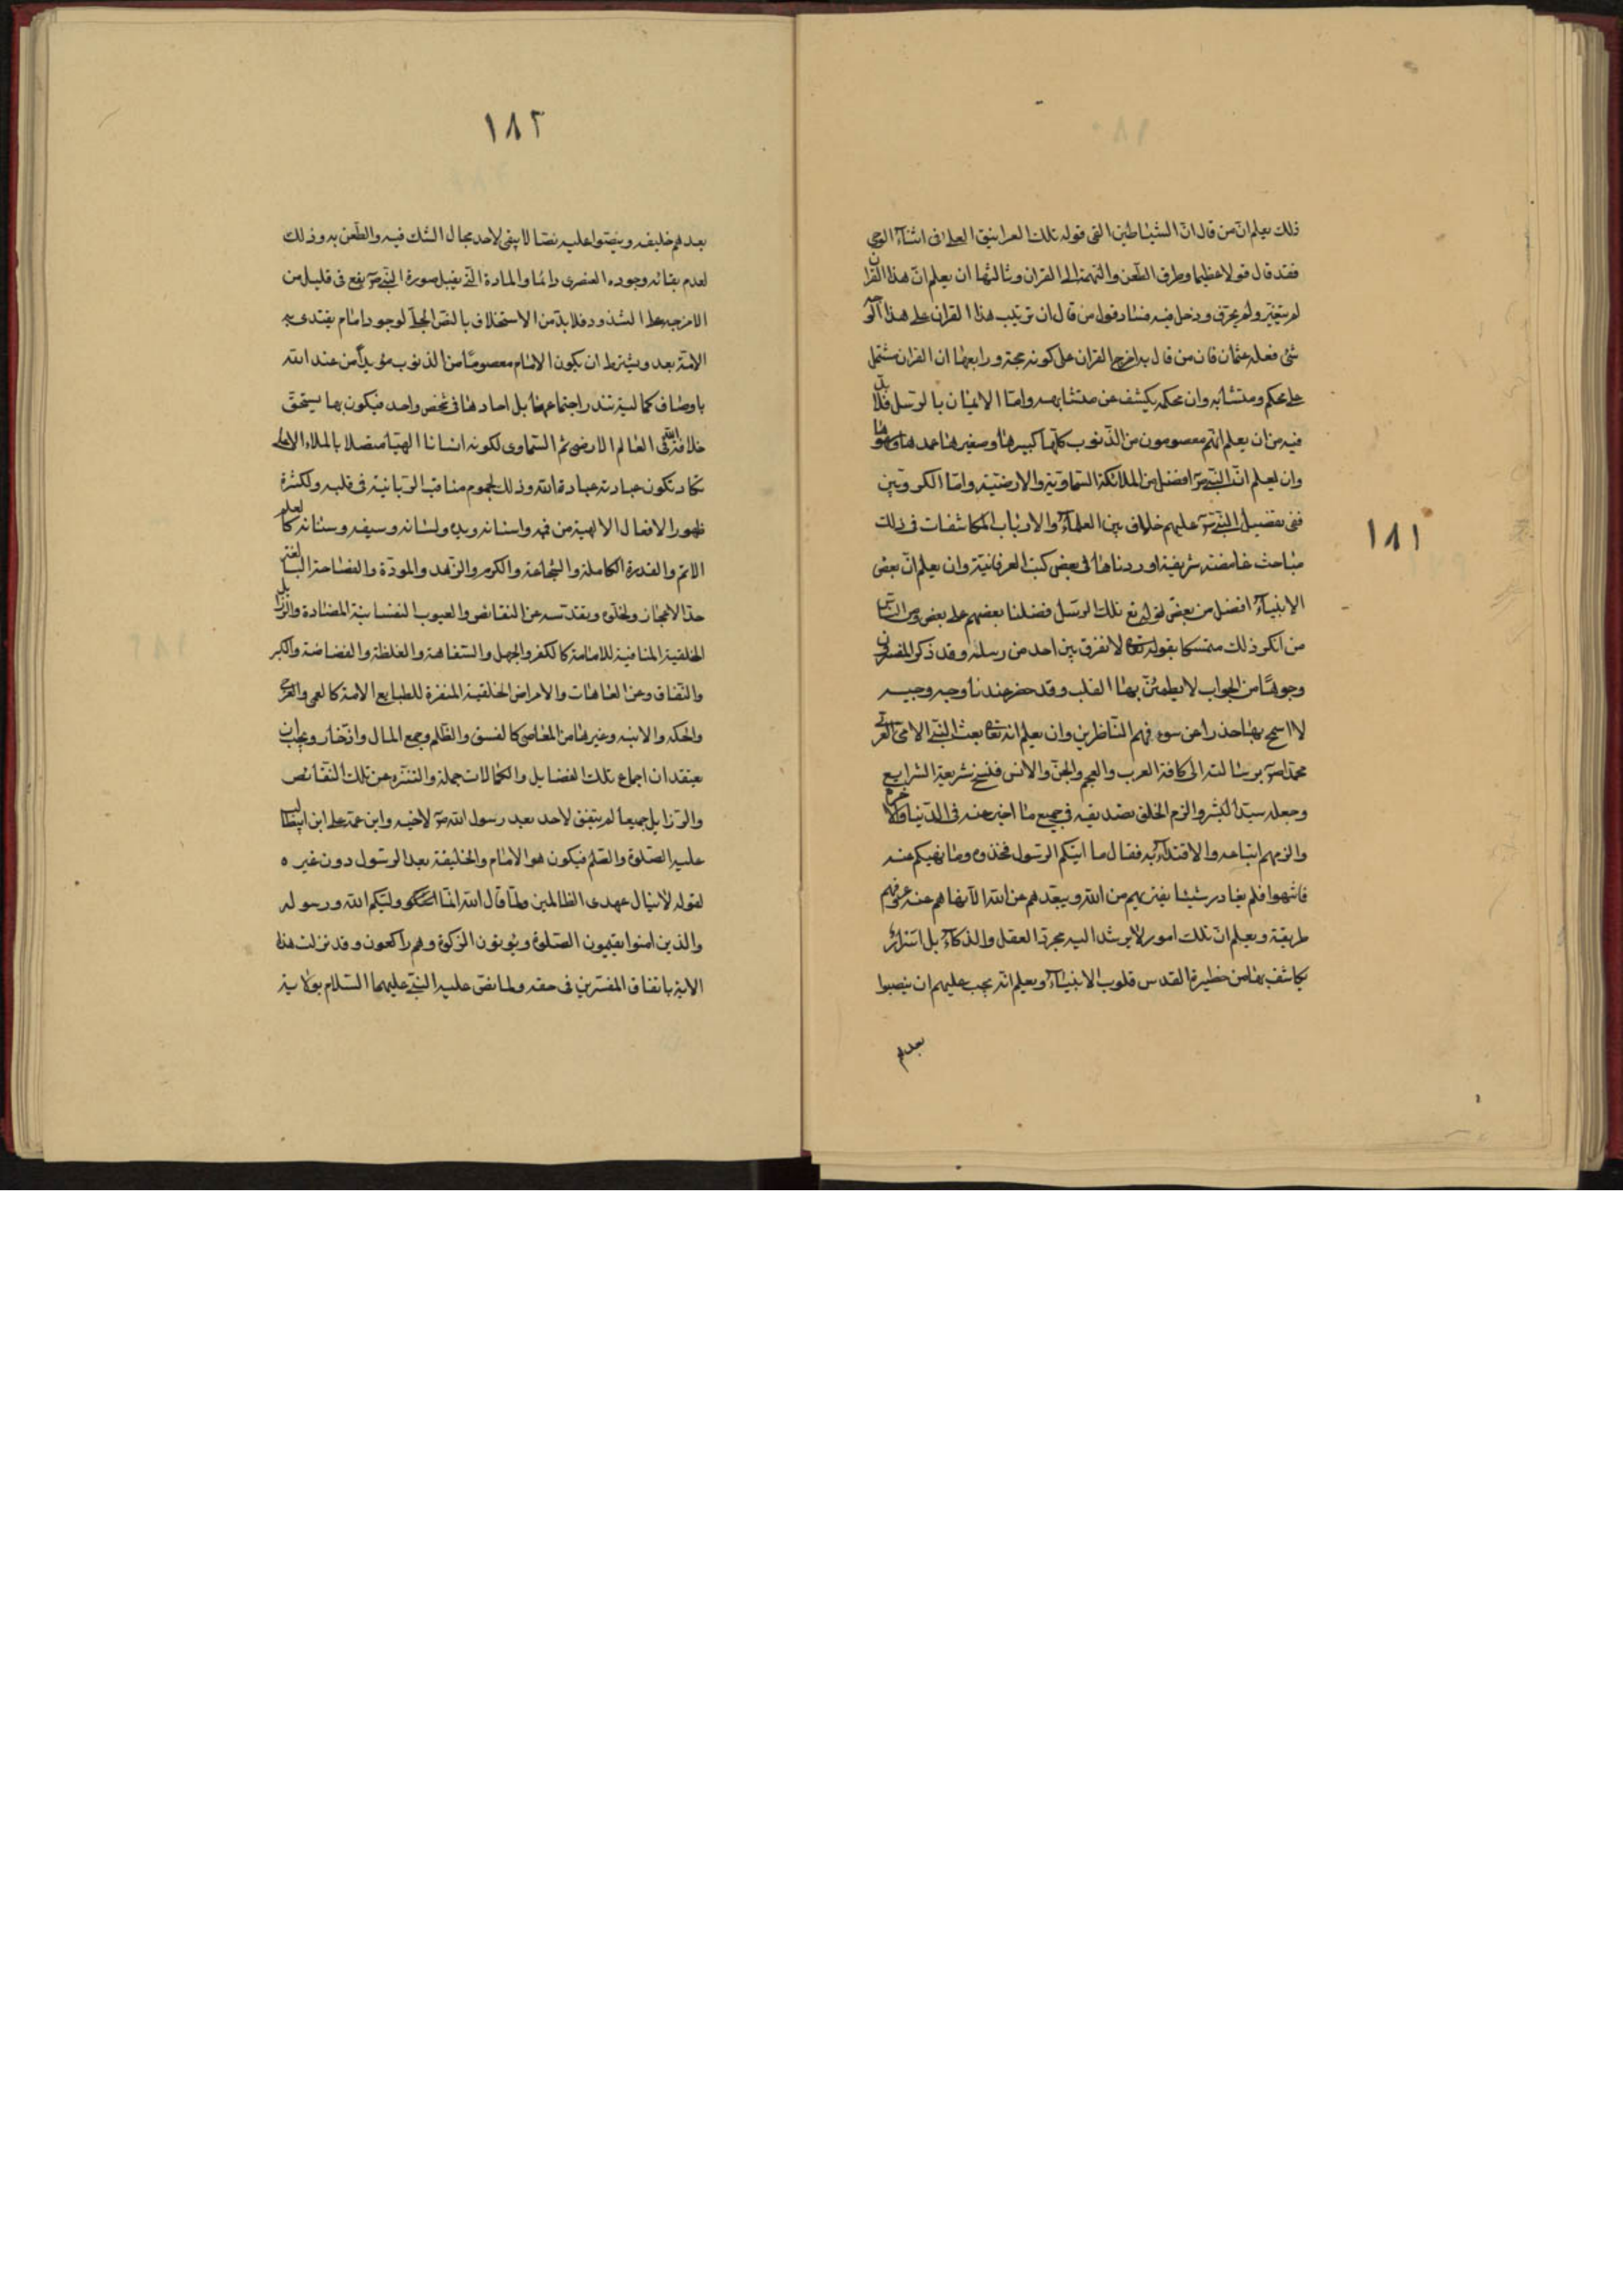 ١٨١
ذلك يعلم ان من قال ان الشياطين القى قوله تلك الغرانيق العلى فى اثناء الوحى
فقد قال قولا عظيما وطرق الطعن والتهمة الى القران وثالثها ان يعلم ان هذا القران
لم يتغير ولم يحرف ودخل فيه فساد قول من قال ان ترتيب هذا القران على هذا الوجه
شئ فعله عثمان فان من قال به اخرج القران على كونه حجة ورابعها ان القران مشتمل
على محكم ومتشابه وان محكمه يكشف عن متشابهه واما الايمان بالرسل فلا بد
فيه من ان يعلم انهم معصومون من الذنوب كلها كبيرها وصغيرها عمدها وسهوها
وان يعلم ان النبى ص افضل من الملائكة السماوية والارضية واما الكروبين
ففى تفضيل النبى ص عليهم خلاف بين العلماء والارباب المكاشفات فى ذلك
مباحث غامضة شريفة اوردناها فى بعض كتب العرفانية وان يعلم ان بعض
الانبياء افضل من بعض لقوله تع تلك الرسل فضلنا بعضهم على بعض ومن الناس
من انكر ذلك متمسكا بقوله تعا لا نفرق بين احد من رسله وقد ذكر المفسرون
وجوها من الجواب لا يطمئن بها القلب وقد حضر عندنا وجيه وجيه
لا اسمح بها حذرا عن سوء فهم الناظرين وان يعلم انه تعا بعث النبى الامى العربى
محمدا ص برسالته الى كافة العرب والعجم والجن والانس فنسخ بشريعة الشرايع
وجعله سيد البشر والزم الخلق تصديقه فى جميع ما اخبر عنه فى الدنيا والاخرة
والزمهم اتباعه والاقتداء به فقال ما اتيكم الرسول فخذوه وما نهيكم عنه
فانتهوا فلم يغادر شيئا يقربهم من الله ويبعدهم عن الله الا نهاهم عنه عرفهم
طريقة ويعلم ان تلك امور لا يرشد اليه مجرد العقل والذكاء بل اسرار
يكاشف بها من حظيرة القدس قلوب الانبياء ويعلم انه يجب عليهم ان ينصبوا
بعدهم
١٨٢
بعدهم خليفه وينصوا عليه نصا لا يبقى لاحد مجال الشك فيه والطعن به وذلك
لعدم بقائه وجوده العنصرى دائما والمادة التى يقبل صورة النبى ص يقع فى قليل من
الامزجه على الشذوذ فلا بد من الاستخلاف بالنص الجلى لوجود امام يقتدى به
الامة بعده ويشترط ان يكون الامام معصوما من الذنوب مؤيدا من عند الله
باوصاف كمالية تندر اجتماعها بل احادها فى شخص واحد فيكون بها يستحق
خلافة الله فى العالم الارضى ثم السماوى لكونه انسانا الهيا متصلا بالملاء الاعلى
تكاد تكون عبادته عبادة الله وذلك لجموم مناقب الربانية فى قلبه ولكثرة
ظهور الافعال الالهية من فمه واسنانه ويده ولسانه وسيفه وسنانه كالعلم
الاتم والقدرة الكاملة والشجاعة والكرم والزهد والمودة والفصاحة البالغة
حد الاعجاز ولخلوه وبتقدسه عن النقائص والعيوب النفسانية المضادة والرزايل
الخلقية المنافية للامامة كالكفر والجهل والسفاهة والغلظة والفضاضة والكبر
والنفاق وعن العاهات والامراض الخلقية المنفرة للطبايع الامة كالعمى والعرج
والحكه والابنه وغيرها من المعاصى كالفسق والظلم وجمع المال وادخار ويجب ان
يعتقد ان اجماع تلك الفضايل والكمالات جملة والتنزه عن تلك النقائص
والرزايل جميعا لم يتفق لاحد بعد رسول الله ص لاخيه وابن عمه على ابن ابيطالب
عليه الصلوة والسلم فيكون هو الامام والخليفة بعد الرسول دون غيره
لقوله لا ينال عهدى الظالمين ولما قال الله انما وليكم الله ورسوله
والذين امنوا يقيمون الصلوة ويؤتون الزكوة وهم راكعون وقد نزلت هذه
الاية باتفاق المفسرين فى حقه ولما نص عليه النبى عليهما السلام بولاية